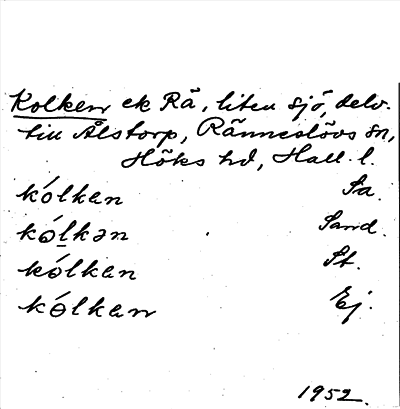 Kolken ek Rä, liten sjö, delv.
till Ålstorp, Ränneslövs sn,
Höks hd, Hall. l.
kólkan Sa.
kólkan Sand.
kólkan St.
kólkan Ej.
1952.